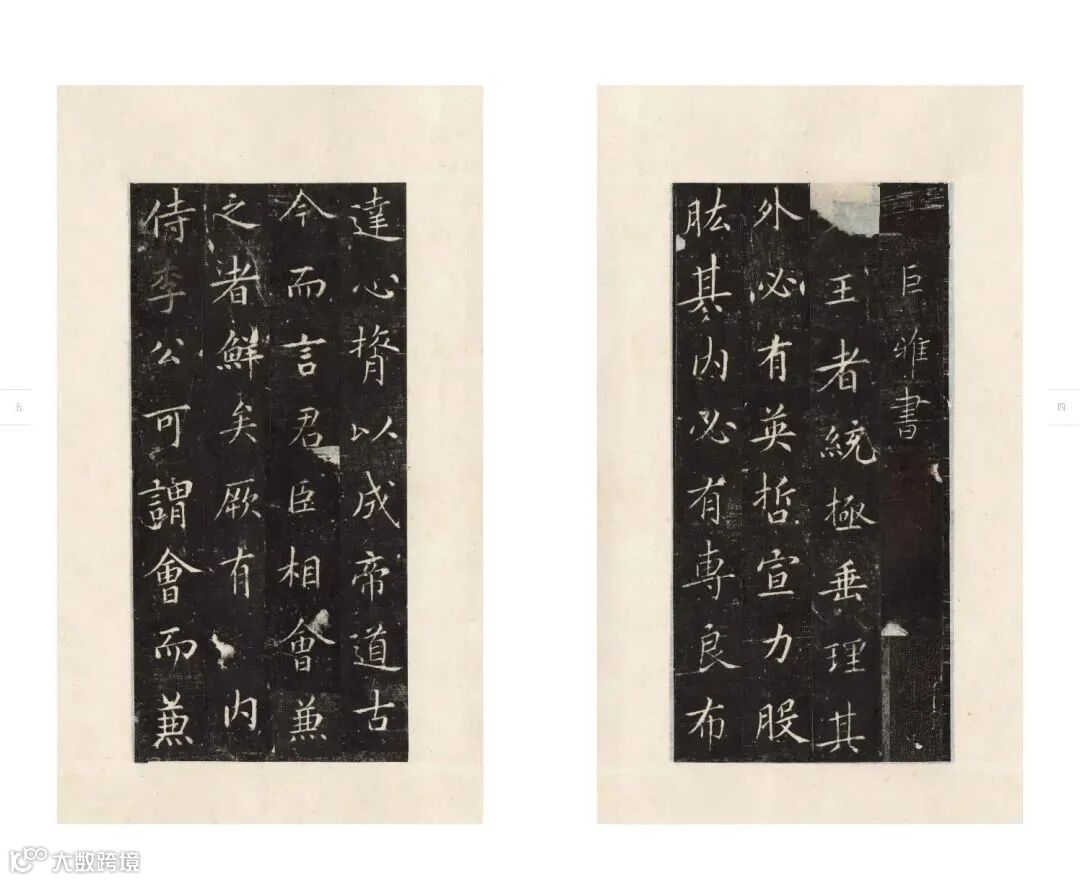 巨雅書
王者統極垂理其
外必有英哲宣力股
肱其内必有專良布
四
達心膂以成帝道古
今而言君臣相會兼
之者鮮矣厥有内
侍李公可謂會而兼
五
大数跨境